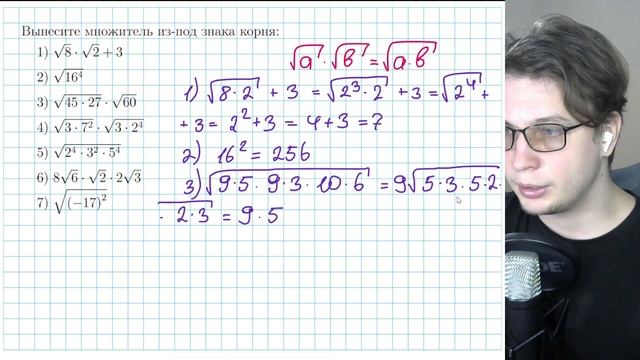 Вынесите множитель из-под знака корня:
1) √8 · √2 + 3
2) √16⁴
3) √45 · 27 · √60
4) √3 · 7² · √3 · 2⁴
5) √2⁴ · 3² · 5⁴
6) 8√6 · √2 · 2√3
7) √(−17)²
√a · √b = √a·b
1) √8·2 + 3 = √2³·2 + 3 = √2⁴ +
+ 3 = 2² + 3 = 4 + 3 = 7
2) 16² = 256
3) √9·5·9·3·10·6 = 9√5·3·5·2·
· 2·3 = 9·5